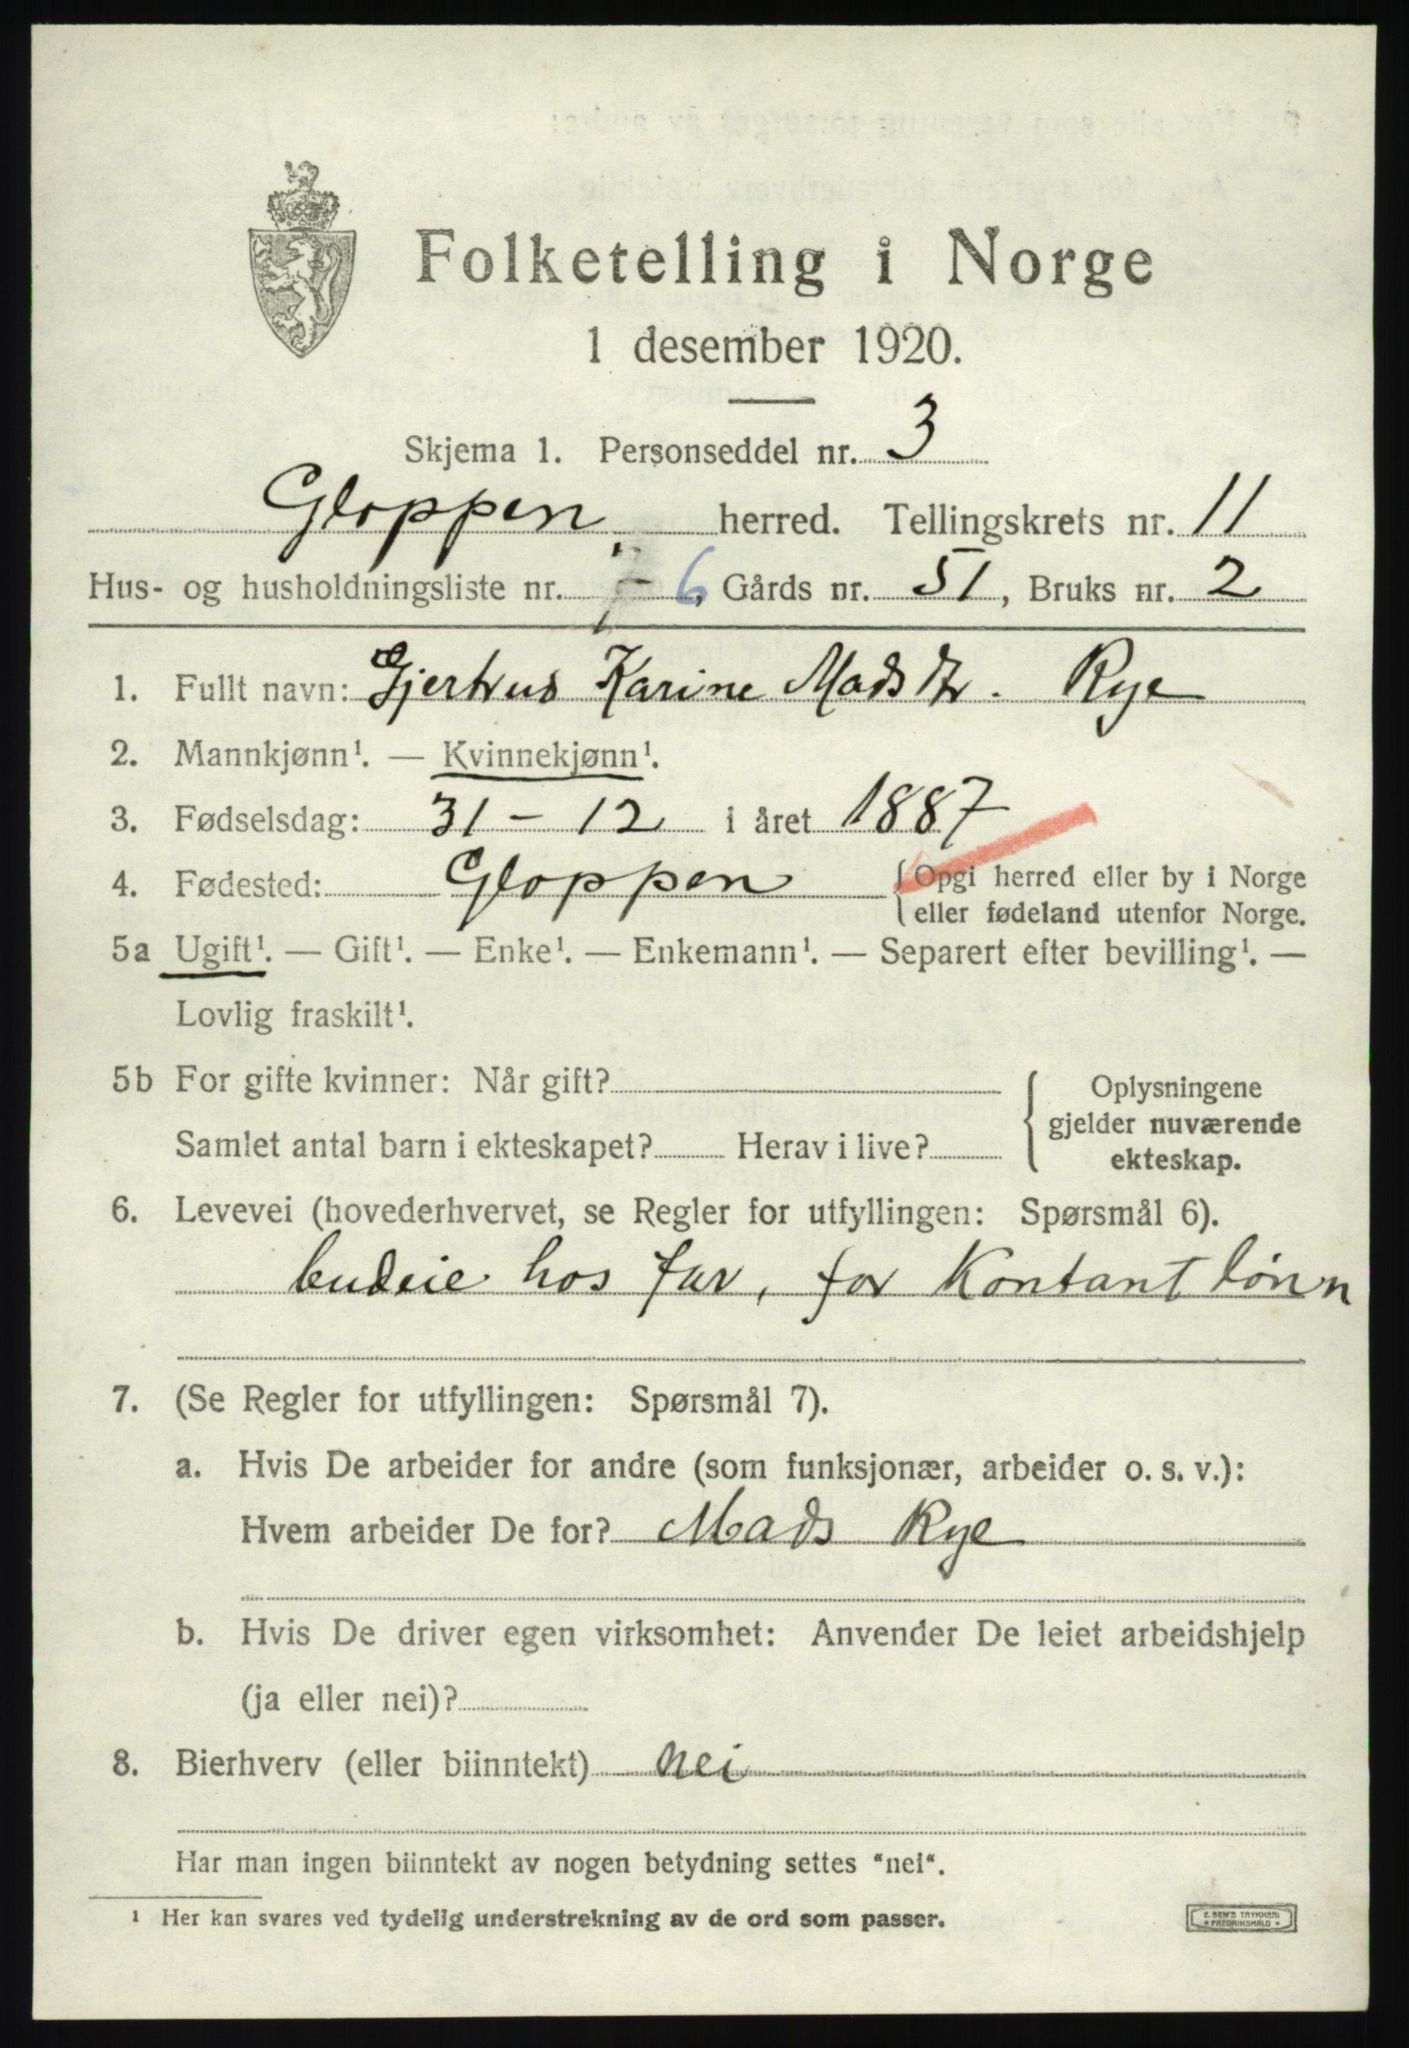 Folketelling i Norge
1 desember 1920.
Skjema 1. Personseddel nr. 3
Gloppen herred. Tellingskrets nr. 11
Hus- og husholdningsliste nr. 6, Gårds nr. 51, Bruks nr. 2
1. Fullt navn: Gjertrud Karine Madsdtr. Rye
2. Mannkjønn¹. — Kvinnekjønn¹.
3. Fødselsdag: 31 - 12 i året 1887
4. Fødested: Gloppen {Opgi herred eller by i Norge
eller fødeland utenfor Norge.
5a Ugift¹. — Gift¹. — Enke¹. — Enkemann¹. — Separert efter bevilling¹. —
Lovlig fraskilt¹.
5b For gifte kvinner: Når gift?
Samlet antal barn i ekteskapet? Herav i live?
Oplysningene
gjelder nuværende
ekteskap.
6. Levevei (hovederhvervet, se Regler for utfyllingen: Spørsmål 6).
budeie hos far, for Kontant lønn
7. (Se Regler for utfyllingen: Spørsmål 7).
a. Hvis De arbeider for andre (som funksjonær, arbeider o. s. v.):
Hvem arbeider De for? Mads Rye
b. Hvis De driver egen virksomhet: Anvender De leiet arbeidshjelp
(ja eller nei)?
8. Bierhverv (eller biinntekt) nei
Har man ingen biinntekt av nogen betydning settes "nei".
¹ Her kan svares ved tydelig understrekning av de ord som passer.
E. SEM'S TRYKKERI
FREDRIKSHALD